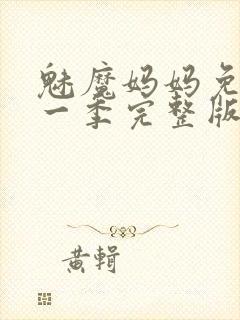 魅魔妈妈免
一季完整版
黄辑